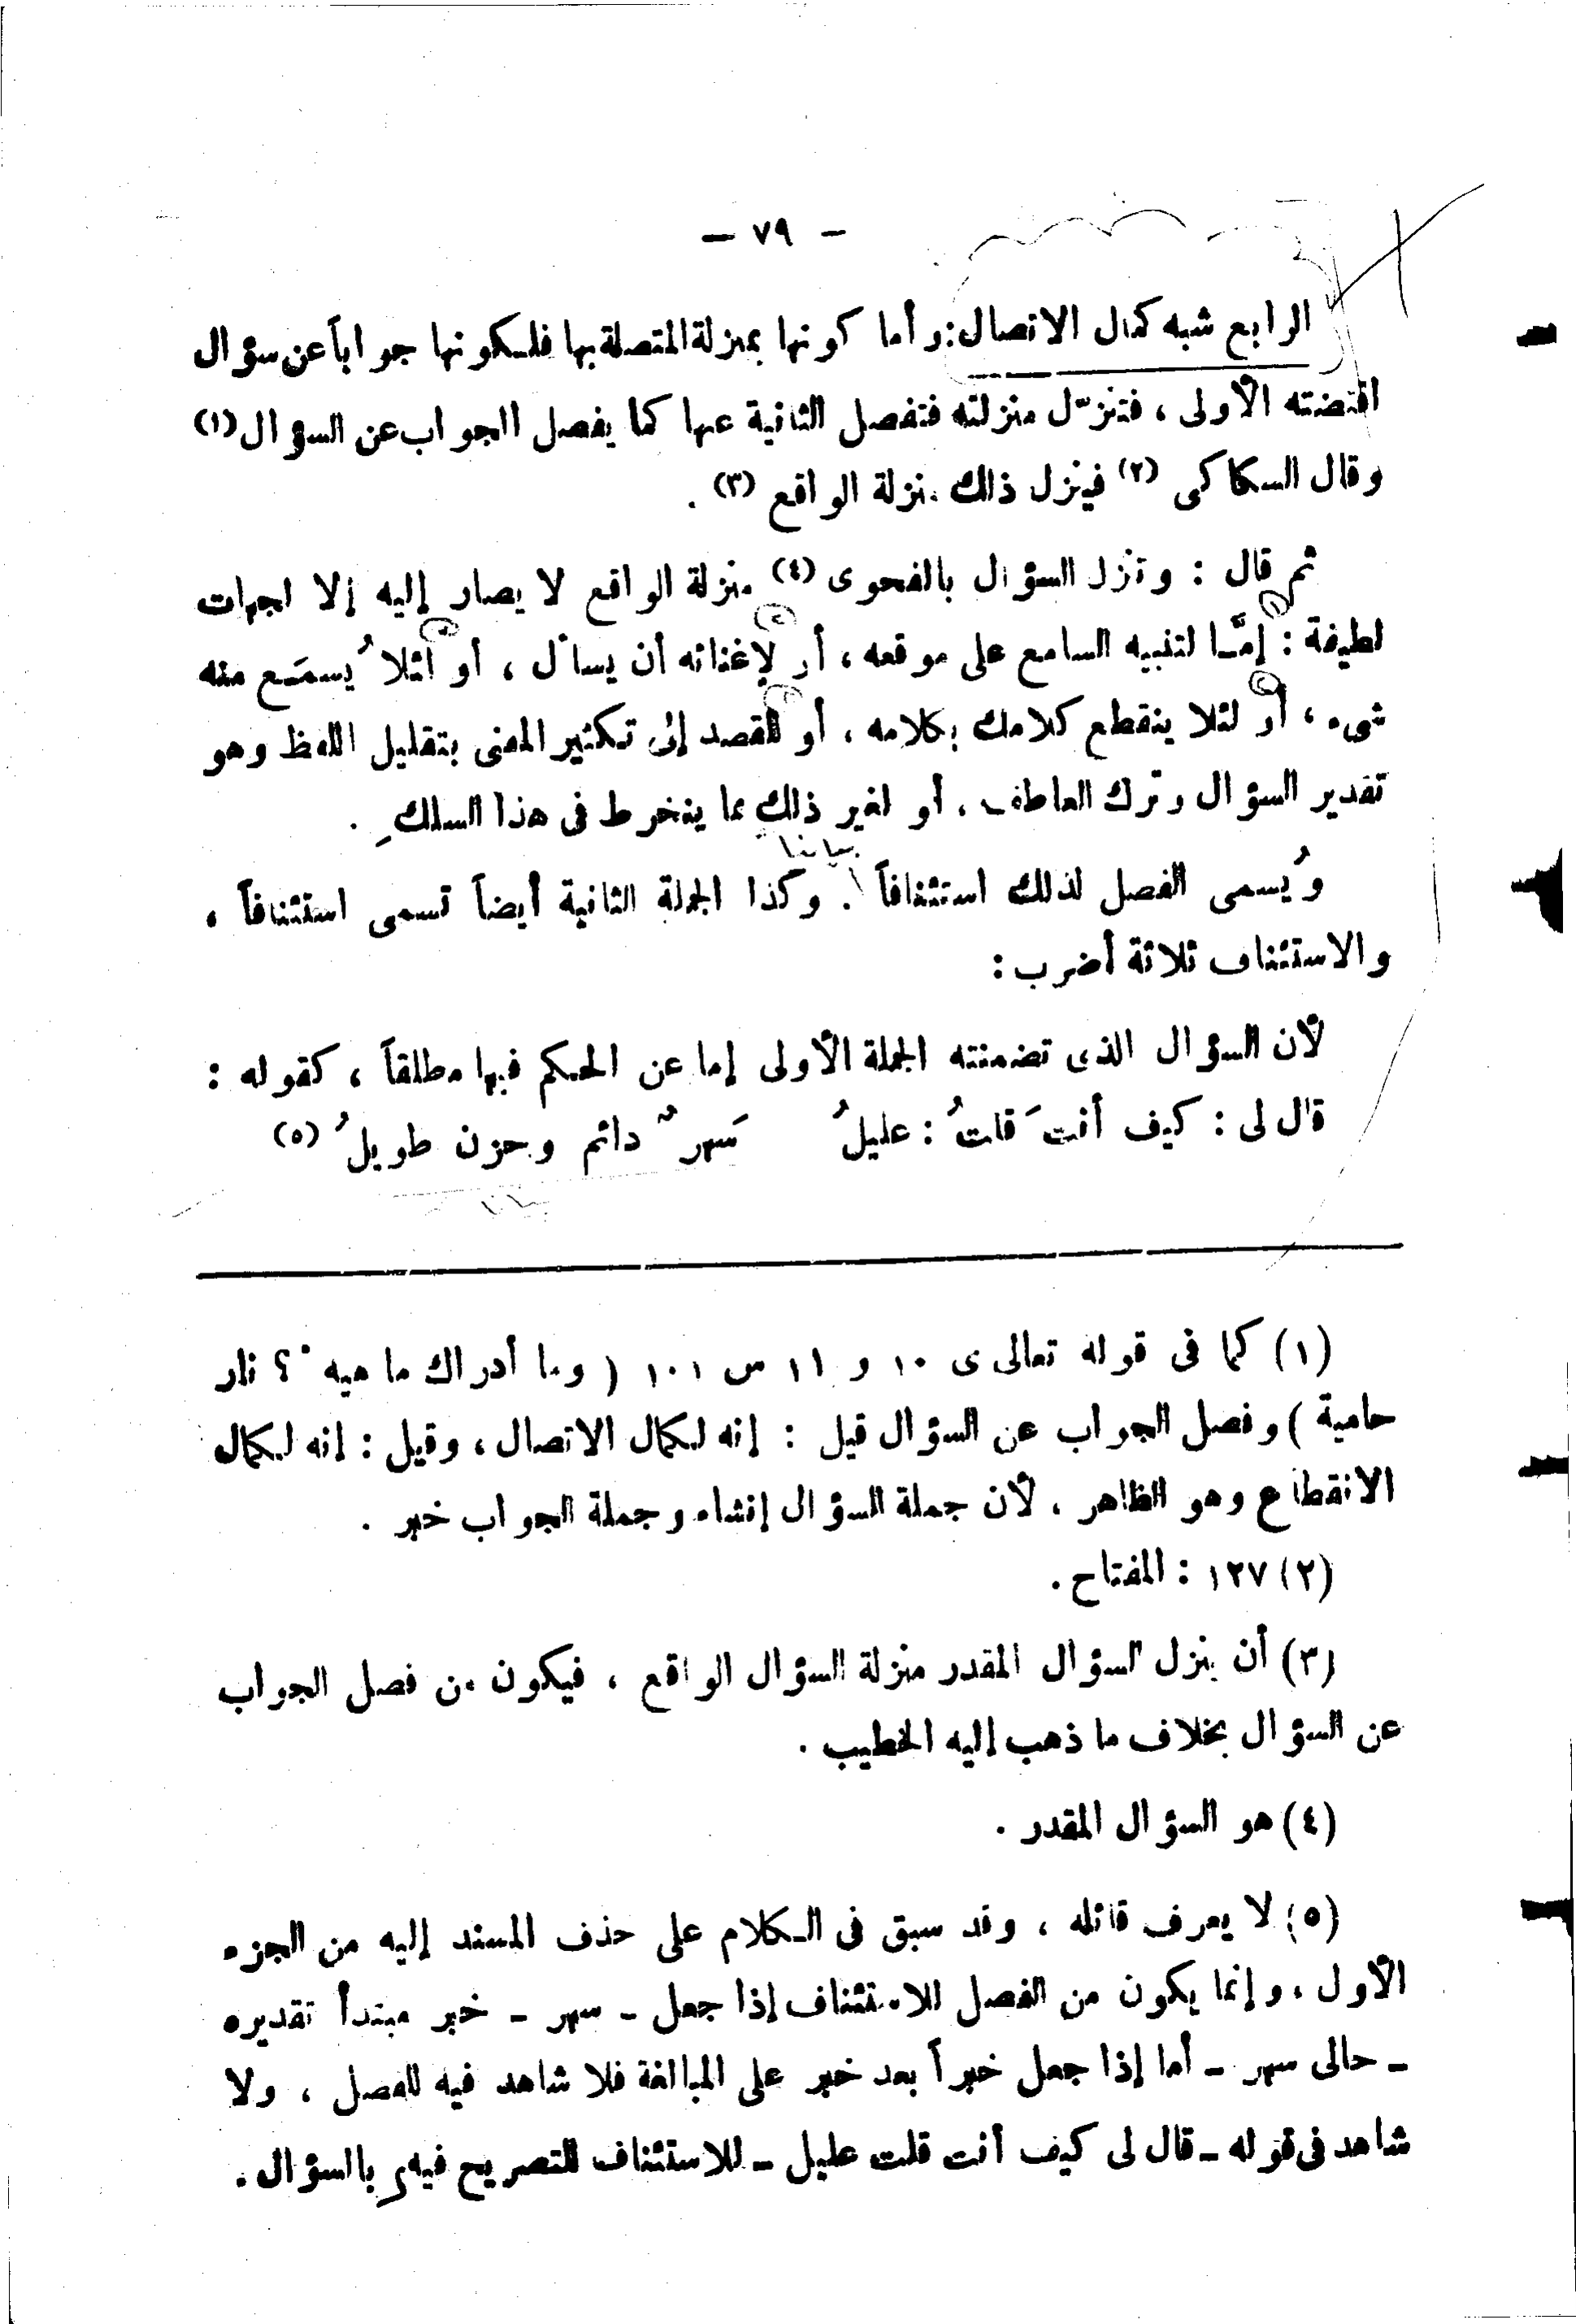 — ٧٩ —
الرابع شبه كمال الاتصال: وأما كونها بمنزلة المتصلة بها فلكونها جواباً عن سؤال
اقتضته الأولى ، فتنزّل منزلته فتفصل الثانية عنها كما يفصل الجواب عن السؤال (١)
وقال السكاكى (٢) فينزل ذلك منزلة الواقع (٣) .
ثم قال : وتنزل السؤال بالفحوى (٤) منزلة الواقع لا يصار إليه إلا لجهات
لطيفة : إمَّا لتنبيه السامع على موقعه ، أو لإغنائه أن يسأل ، أو لئلا يُسمَع منه
شىء ، أو لئلا ينقطع كلامك بكلامه ، أو للقصد إلى تكثير المعنى بتقليل اللفظ وهو
تقدير السؤال وترك العاطف ، أو لغير ذلك مما ينخرط فى هذا السلك .
بيانيا
ويُسمى الفصل لذلك استئنافاً . وكذا الجملة الثانية أيضاً تسمى استئنافاً ،
والاستئناف ثلاثة أضرب :
لأن السؤال الذى تضمنته الجملة الأولى إما عن الحكم فيها مطلقاً ، كقوله :
قال لى : كيف أنتَ قلتُ : عليلُ سَهرٌ دائم وحزن طويلُ (٥)
(١) كما فى قوله تعالى ى ١٠ و ١١ س ١٠١ ( وما أدراك ما هيهْ ؟ نار
حامية ) وفصل الجواب عن السؤال قيل : إنه لكمال الاتصال ، وقيل : إنه لكمال
الانقطاع وهو الظاهر ، لأن جملة السؤال إنشاء وجملة الجواب خبر .
(٢) ١٢٧ : المفتاح .
(٣) أن ينزل السؤال المقدر منزلة السؤال الواقع ، فيكون من فصل الجواب
عن السؤال بخلاف ما ذهب إليه الخطيب .
(٤) هو السؤال المقدر .
(٥) لا يعرف قائله ، وقد سبق فى الكلام على حذف المسند إليه من الجزء
الأول ، وإنما يكون من الفصل للاستئناف إذا جعل - سهر - خبر مبتدأ تقديره
- حالى سهر - أما إذا جعل خبراً بعد خبر على المبالغة فلا شاهد فيه للفصل ، ولا
شاهد فى قوله - قال لى كيف أنت قلت عليل - للاستئناف للتصريح فيه بالسؤال .